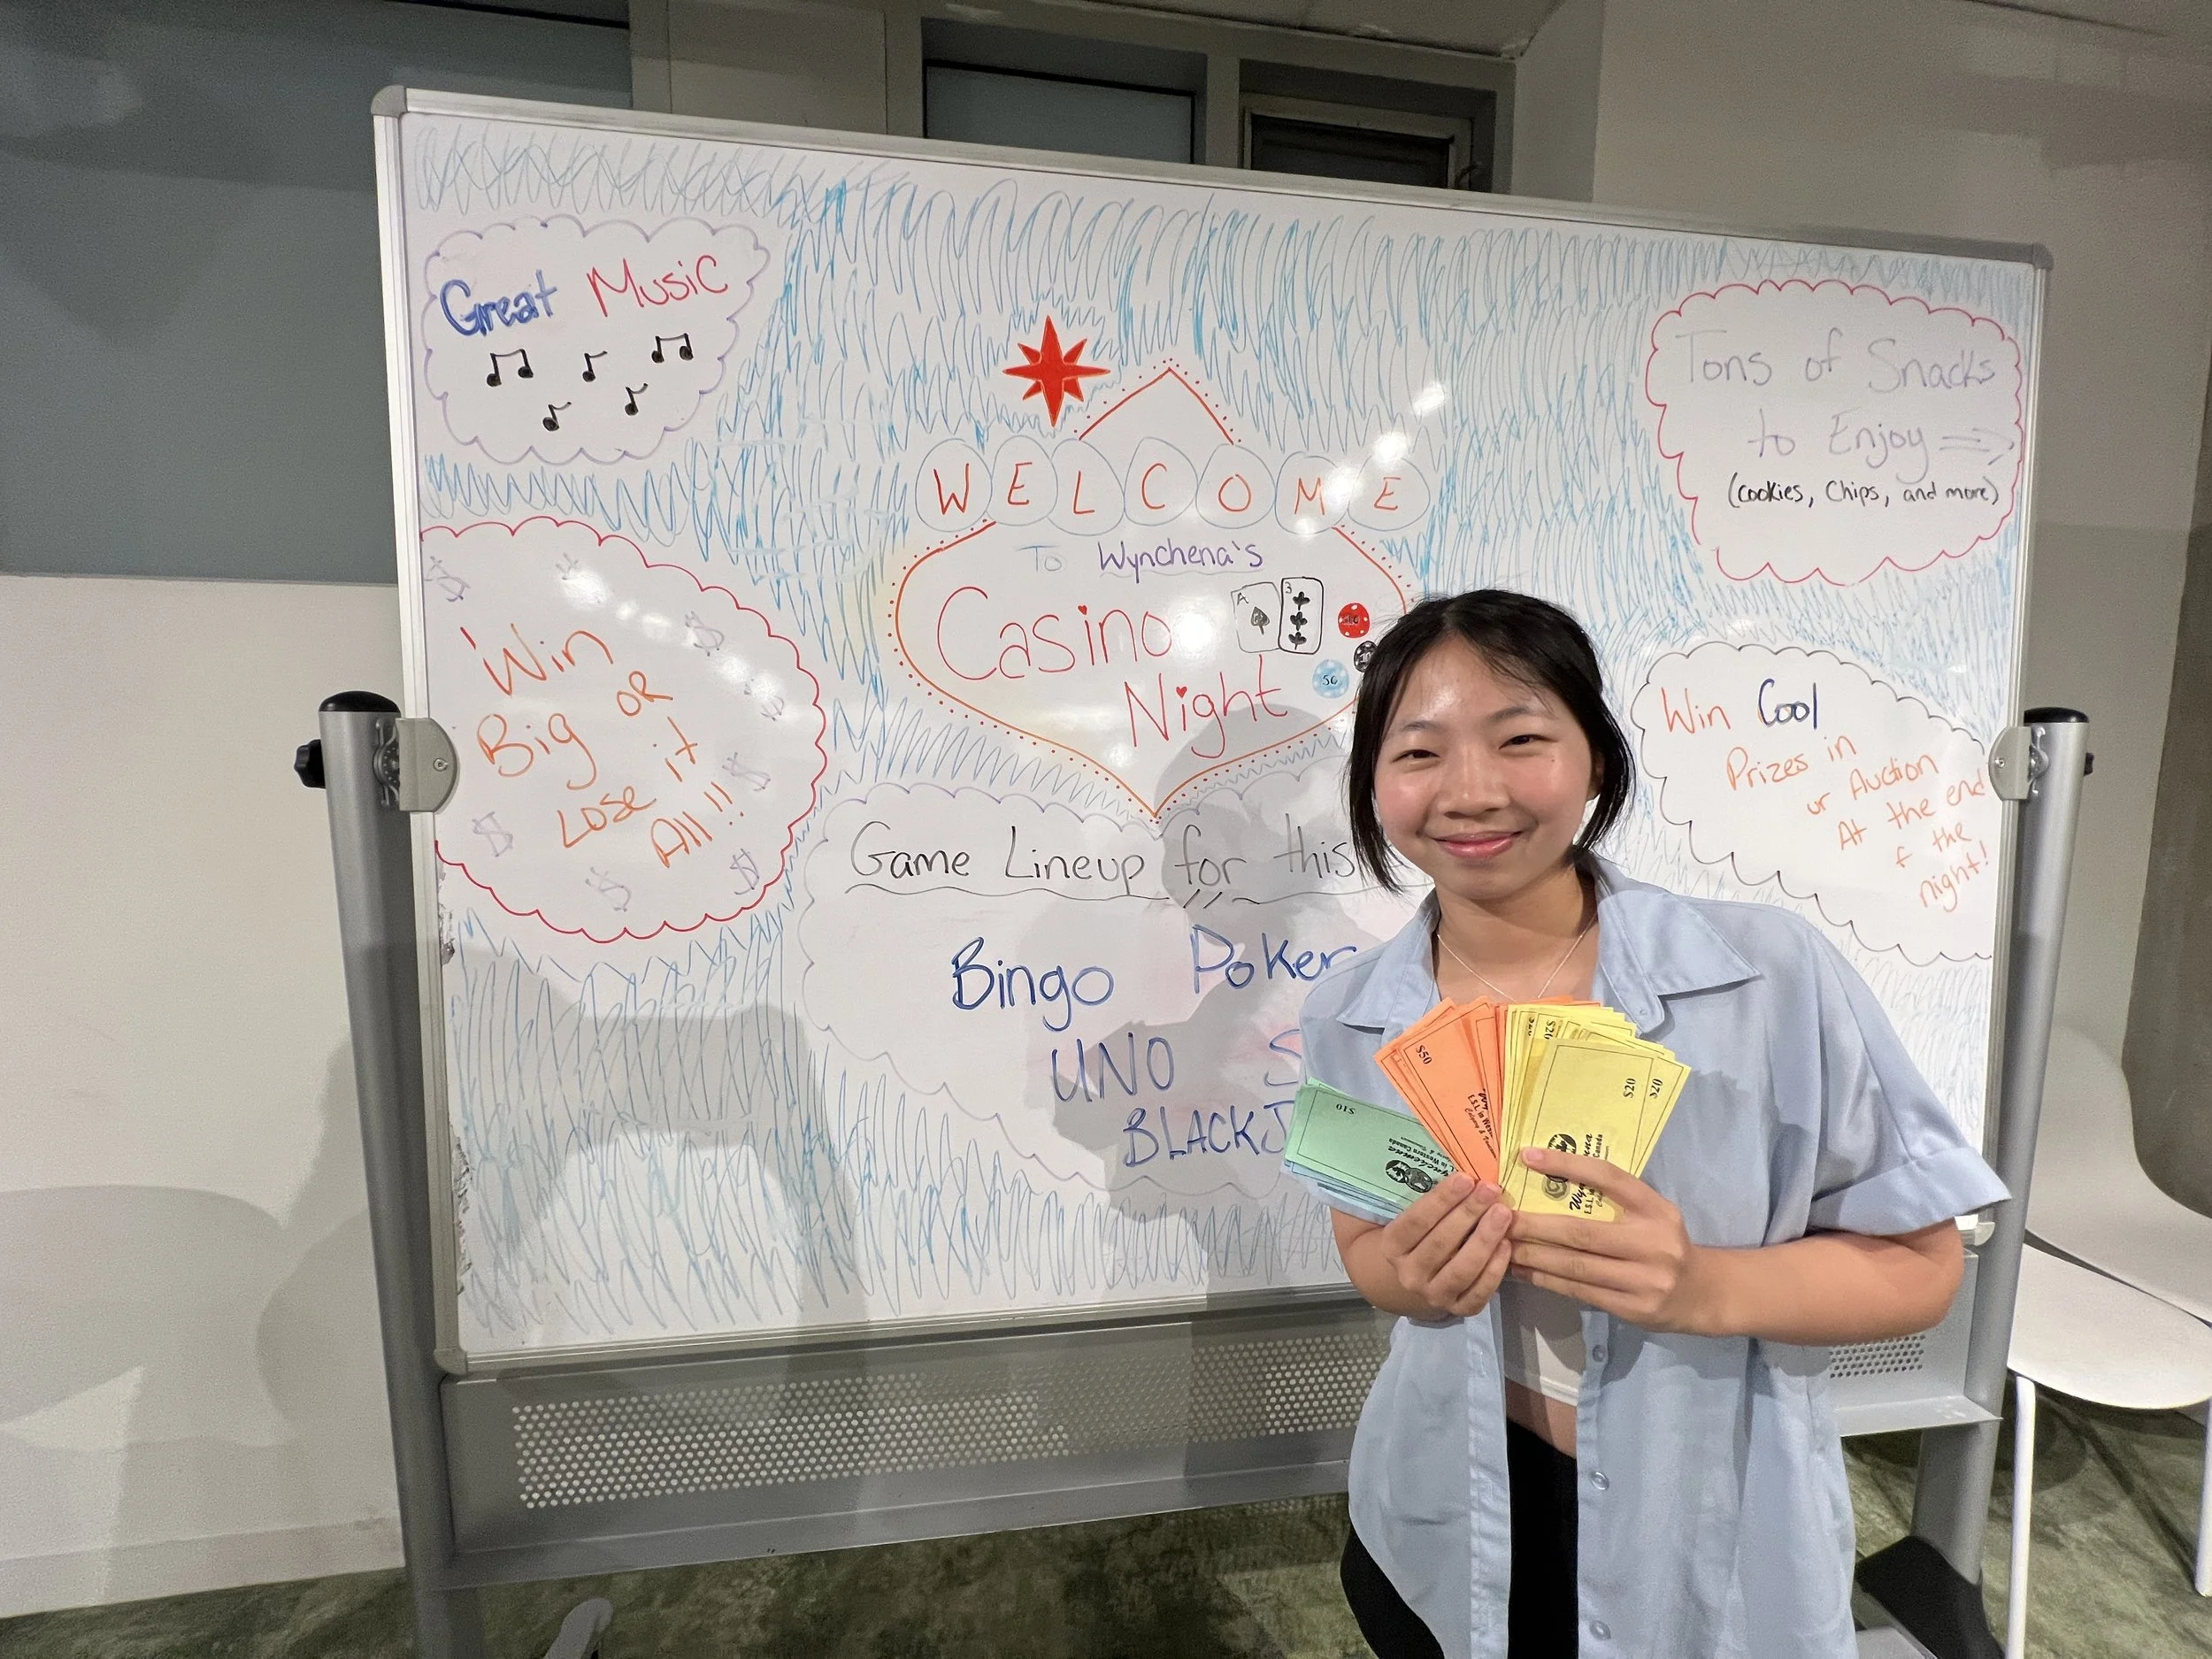 Great Music
WELCOME
To Wynchena's
Casino
Night
A
3
50
Tons of Snacks
to Enjoy
(cookies, Chips, and more)
Win
Big OR
Lose it
All!!
$
$
$
$
$
$
Win Cool
Prizes in
ur Auction
At the end
f the
night!
Game Lineup for this
Bingo Poker
UNO S
BLACKJ
$10
$50
$20
$20
$20
Wynchena
E.S.L. in Western Canada